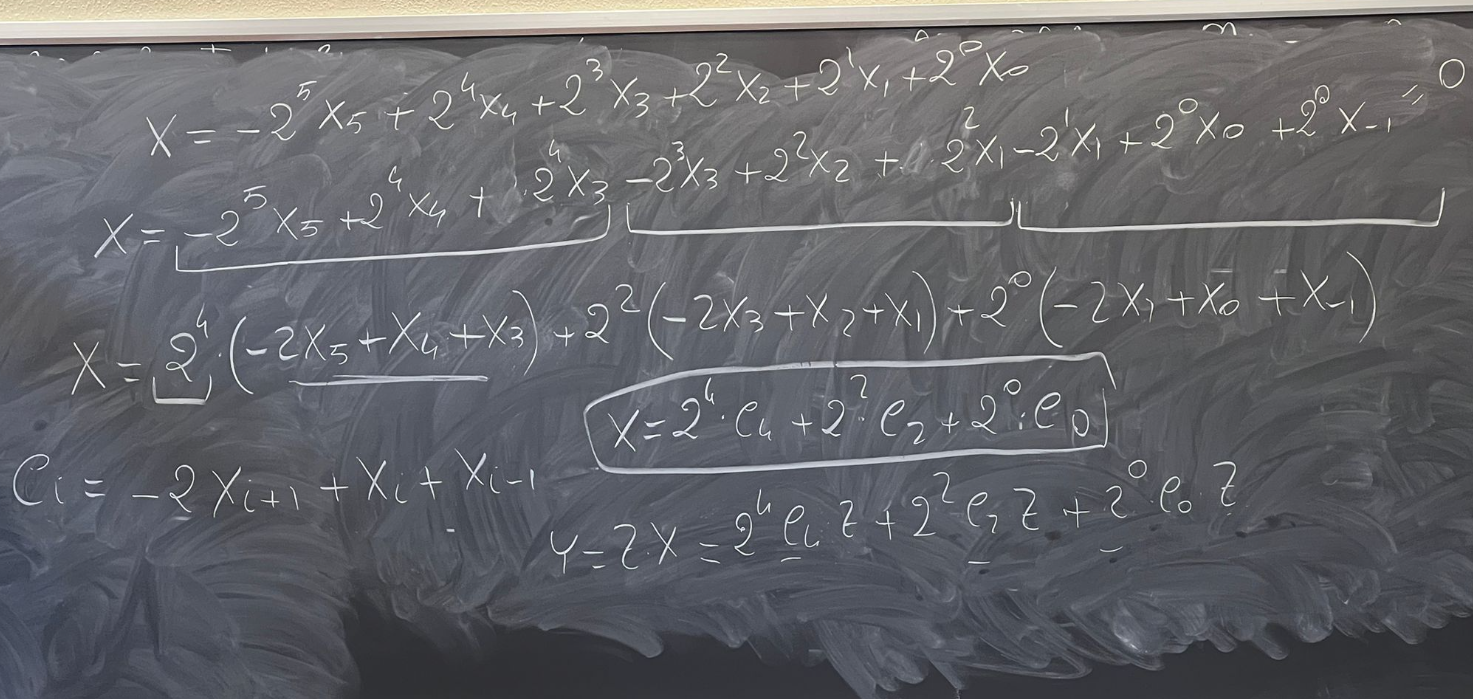 X = -2⁵x₅ + 2⁴x₄ + 2³x₃ + 2²x₂ + 2¹x₁ + 2⁰x₀
X = -2⁵x₅ + 2⁴x₄ + 2⁴x₃ - 2³x₃ + 2²x₂ + 2²x₁ - 2¹x₁ + 2⁰x₀ + 2⁰x₋₁ = 0
X = 2⁴·(-2x₅ + x₄ + x₃) + 2²(-2x₃ + x₂ + x₁) + 2⁰(-2x₁ + x₀ + x₋₁)
X = 2⁴·e₄ + 2²·e₂ + 2⁰·e₀
eᵢ = -2xᵢ₊₁ + xᵢ + xᵢ₋₁
Y = Z·X = 2⁴e₄Z + 2²e₂Z + 2⁰e₀Z